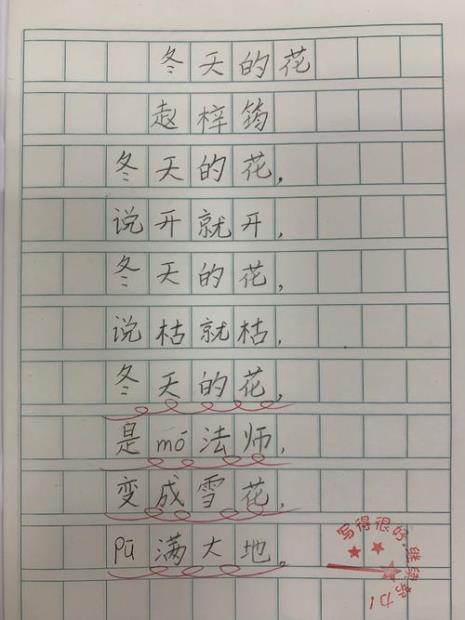 冬天的花
赵梓筠
冬天的花，
说开就开，
冬天的花，
说枯就枯，
冬天的花，
是mō法师，
变成雪花，
pū满大地。
写得很好，继续努力！